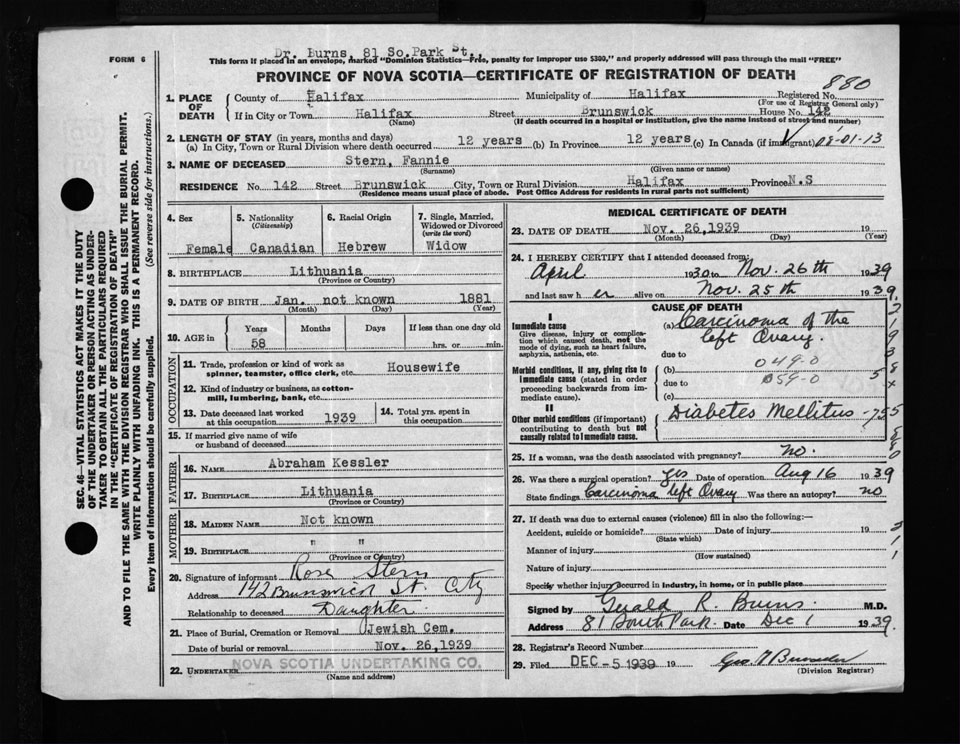 Dr. Burns, 81 So.Park St.,
FORM 6
This form if placed in an envelope, marked "Dominion Statistics—Free, penalty for improper use $300," and properly addressed will pass through the mail "FREE"
PROVINCE OF NOVA SCOTIA—CERTIFICATE OF REGISTRATION OF DEATH
880
1. PLACE OF DEATH
County of Halifax Municipality of Halifax Registered No.
(For use of Registrar General only)
If in City or Town Halifax Street Brunswick House No. 142
(Name) (If death occurred in a hospital or institution, give the name instead of street and number)
2. LENGTH OF STAY (in years, months and days)
(a) In City, Town or Rural Division where death occurred 12 years (b) In Province 12 years (c) In Canada (if immigrant)
3. NAME OF DECEASED Stern, Fannie
(Given name or names)
RESIDENCE No. 142 Street Brunswick City, Town or Rural Division Halifax Province N.S
(Residence means usual place of abode. Post Office Address for residents in rural parts not sufficient)
4. Sex
Female
5. Nationality
(Citizenship)
Canadian
6. Racial Origin
Hebrew
7. Single, Married, Widowed or Divorced
(write the word)
Widow
8. BIRTHPLACE Lithuania
(Province or Country)
9. DATE OF BIRTH Jan. not known 1881
(Month) (Day) (Year)
10. AGE in
Years Months Days If less than one day old
58 hrs. or min.
OCCUPATION
11. Trade, profession or kind of work as spinner, teamster, office clerk, etc. Housewife
12. Kind of industry or business, as cotton-mill, lumbering, bank, etc.
13. Date deceased last worked at this occupation 1939
14. Total yrs. spent in this occupation
15. If married give name of wife or husband of deceased
FATHER
16. NAME Abraham Kessler
17. BIRTHPLACE Lithuania
(Province or Country)
MOTHER
18. MAIDEN NAME Not known
19. BIRTHPLACE " "
(Province or Country)
20. Signature of informant Rose Stern
Address 142 Brunswick St. City
Relationship to deceased Daughter
21. Place of Burial, Cremation or Removal Jewish Cem.
Date of burial or removal Nov. 26,1939
22. UNDERTAKER NOVA SCOTIA UNDERTAKING CO.
(Name and address)
MEDICAL CERTIFICATE OF DEATH
23. DATE OF DEATH Nov. 26,1939 19
(Month) (Day) (Year)
24. I HEREBY CERTIFY that I attended deceased from:
April 1930 to Nov. 26th 1939
and last saw her alive on Nov. 25th 1939
CAUSE OF DEATH
I
Immediate cause
Give disease, injury or complication which caused death, not the mode of dying, such as heart failure, asphyxia, asthenia, etc.
(a) Carcinoma of the
left Ovary.
due to
Morbid conditions, if any, giving rise to immediate cause (stated in order proceeding backwards from immediate cause).
(b) 049-0
due to 059-0
(c)
II
Other morbid conditions (if important) contributing to death but not causally related to immediate cause.
Diabetes Mellitus
25. If a woman, was the death associated with pregnancy? no.
26. Was there a surgical operation? Yes Date of operation Aug 16 1939
State findings Carcinoma left Ovary Was there an autopsy? no
27. If death was due to external causes (violence) fill in also the following:—
Accident, suicide or homicide? Date of injury 19
(State which)
Manner of injury
(How sustained)
Nature of injury
Specify whether injury occurred in industry, in home, or in public place
Signed by Gerald R. Burns. M.D.
Address 81 South Park. Date Dec 1 1939.
28. Registrar's Record Number
29. Filed DEC - 5 1939 19
(Division Registrar)
SEC. 46—VITAL STATISTICS ACT MAKES IT THE DUTY
OF THE UNDERTAKER OR PERSON ACTING AS UNDER-
TAKER TO OBTAIN ALL THE PARTICULARS REQUIRED
IN THE "CERTIFICATE OF REGISTRATION OF DEATH"
AND TO FILE THE SAME WITH THE DIVISION REGISTRAR WHO SHALL ISSUE THE BURIAL PERMIT.
WRITE PLAINLY WITH UNFADING INK. THIS IS A PERMANENT RECORD.
Every item of information should be carefully supplied. (See reverse side for instructions.)